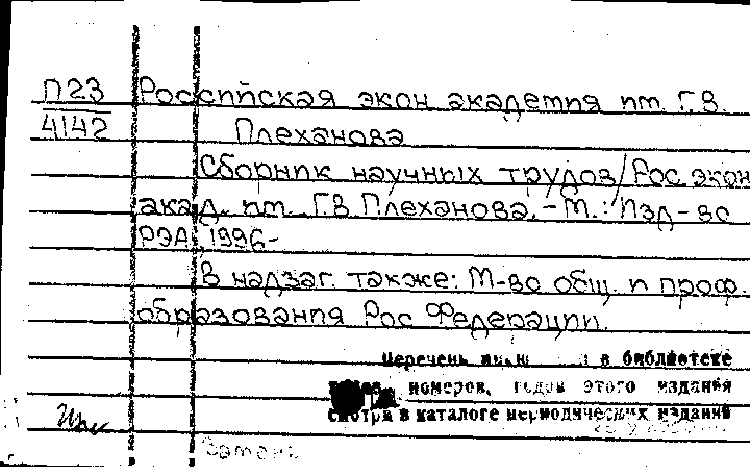 П23 Российская экон академия им. Г.В.
4142 Плеханова
Сборник научных трудов/Рос экон
акад. им. Г.В Плеханова. - М.: Изд-во
РЭА, 1996-
В надзаг. также: М-во общ. и проф.
образования Рос Федерации.
Перечень в библиотеке
номеров, годов этого издания
смотри в каталоге периодических изданий